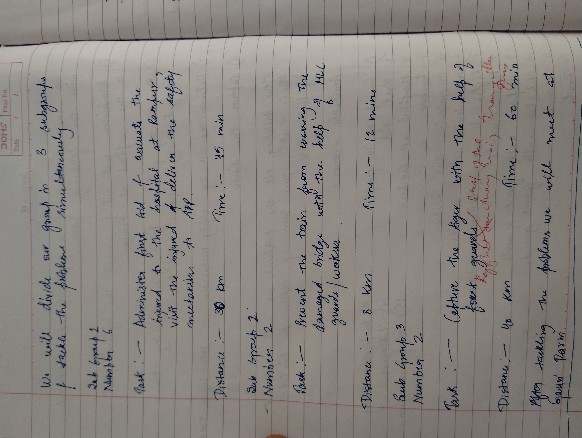 We will divide our group in 3 subgroups
& tackle the problem simultaneously
Sub Group 1
Number 6
Task :— Administer first aid & evacuate the
injured to the hospital at Rampur,
visit the injured & deliver the safety
mechanism to
Distance :— 30 km Time :— 45 min
Sub Group 2
Number 2
Task :— Prevent the train from crossing the
damaged bridge with the help of
guards/
Distance :— 8 km Time :— 12 mins
Sub Group 3
Number 2
Task :— Capture the tiger with the help of
forest guards
Distance :— 40 km Time :— 60 min
After tackling the problems we will meet at
Farm